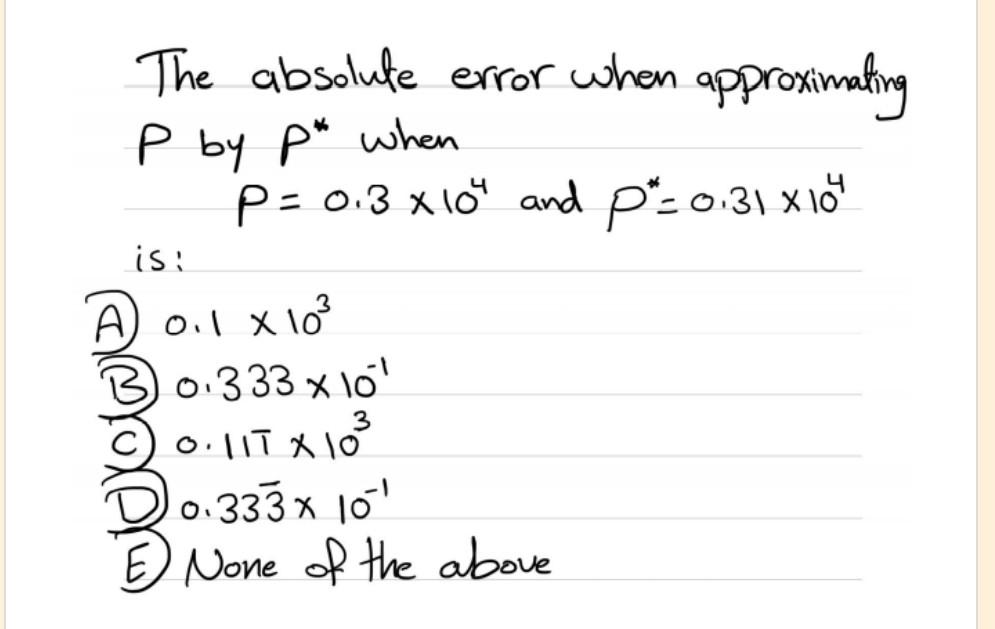 The absolute error when approximating
P by P* when
P = 0.3 × 10⁴ and P* = 0.31 × 10⁴
is:
A) 0.1 × 10³
B) 0.333 × 10⁻¹
C) 0.111̅ × 10³
D) 0.333̅ × 10⁻¹
E) None of the above